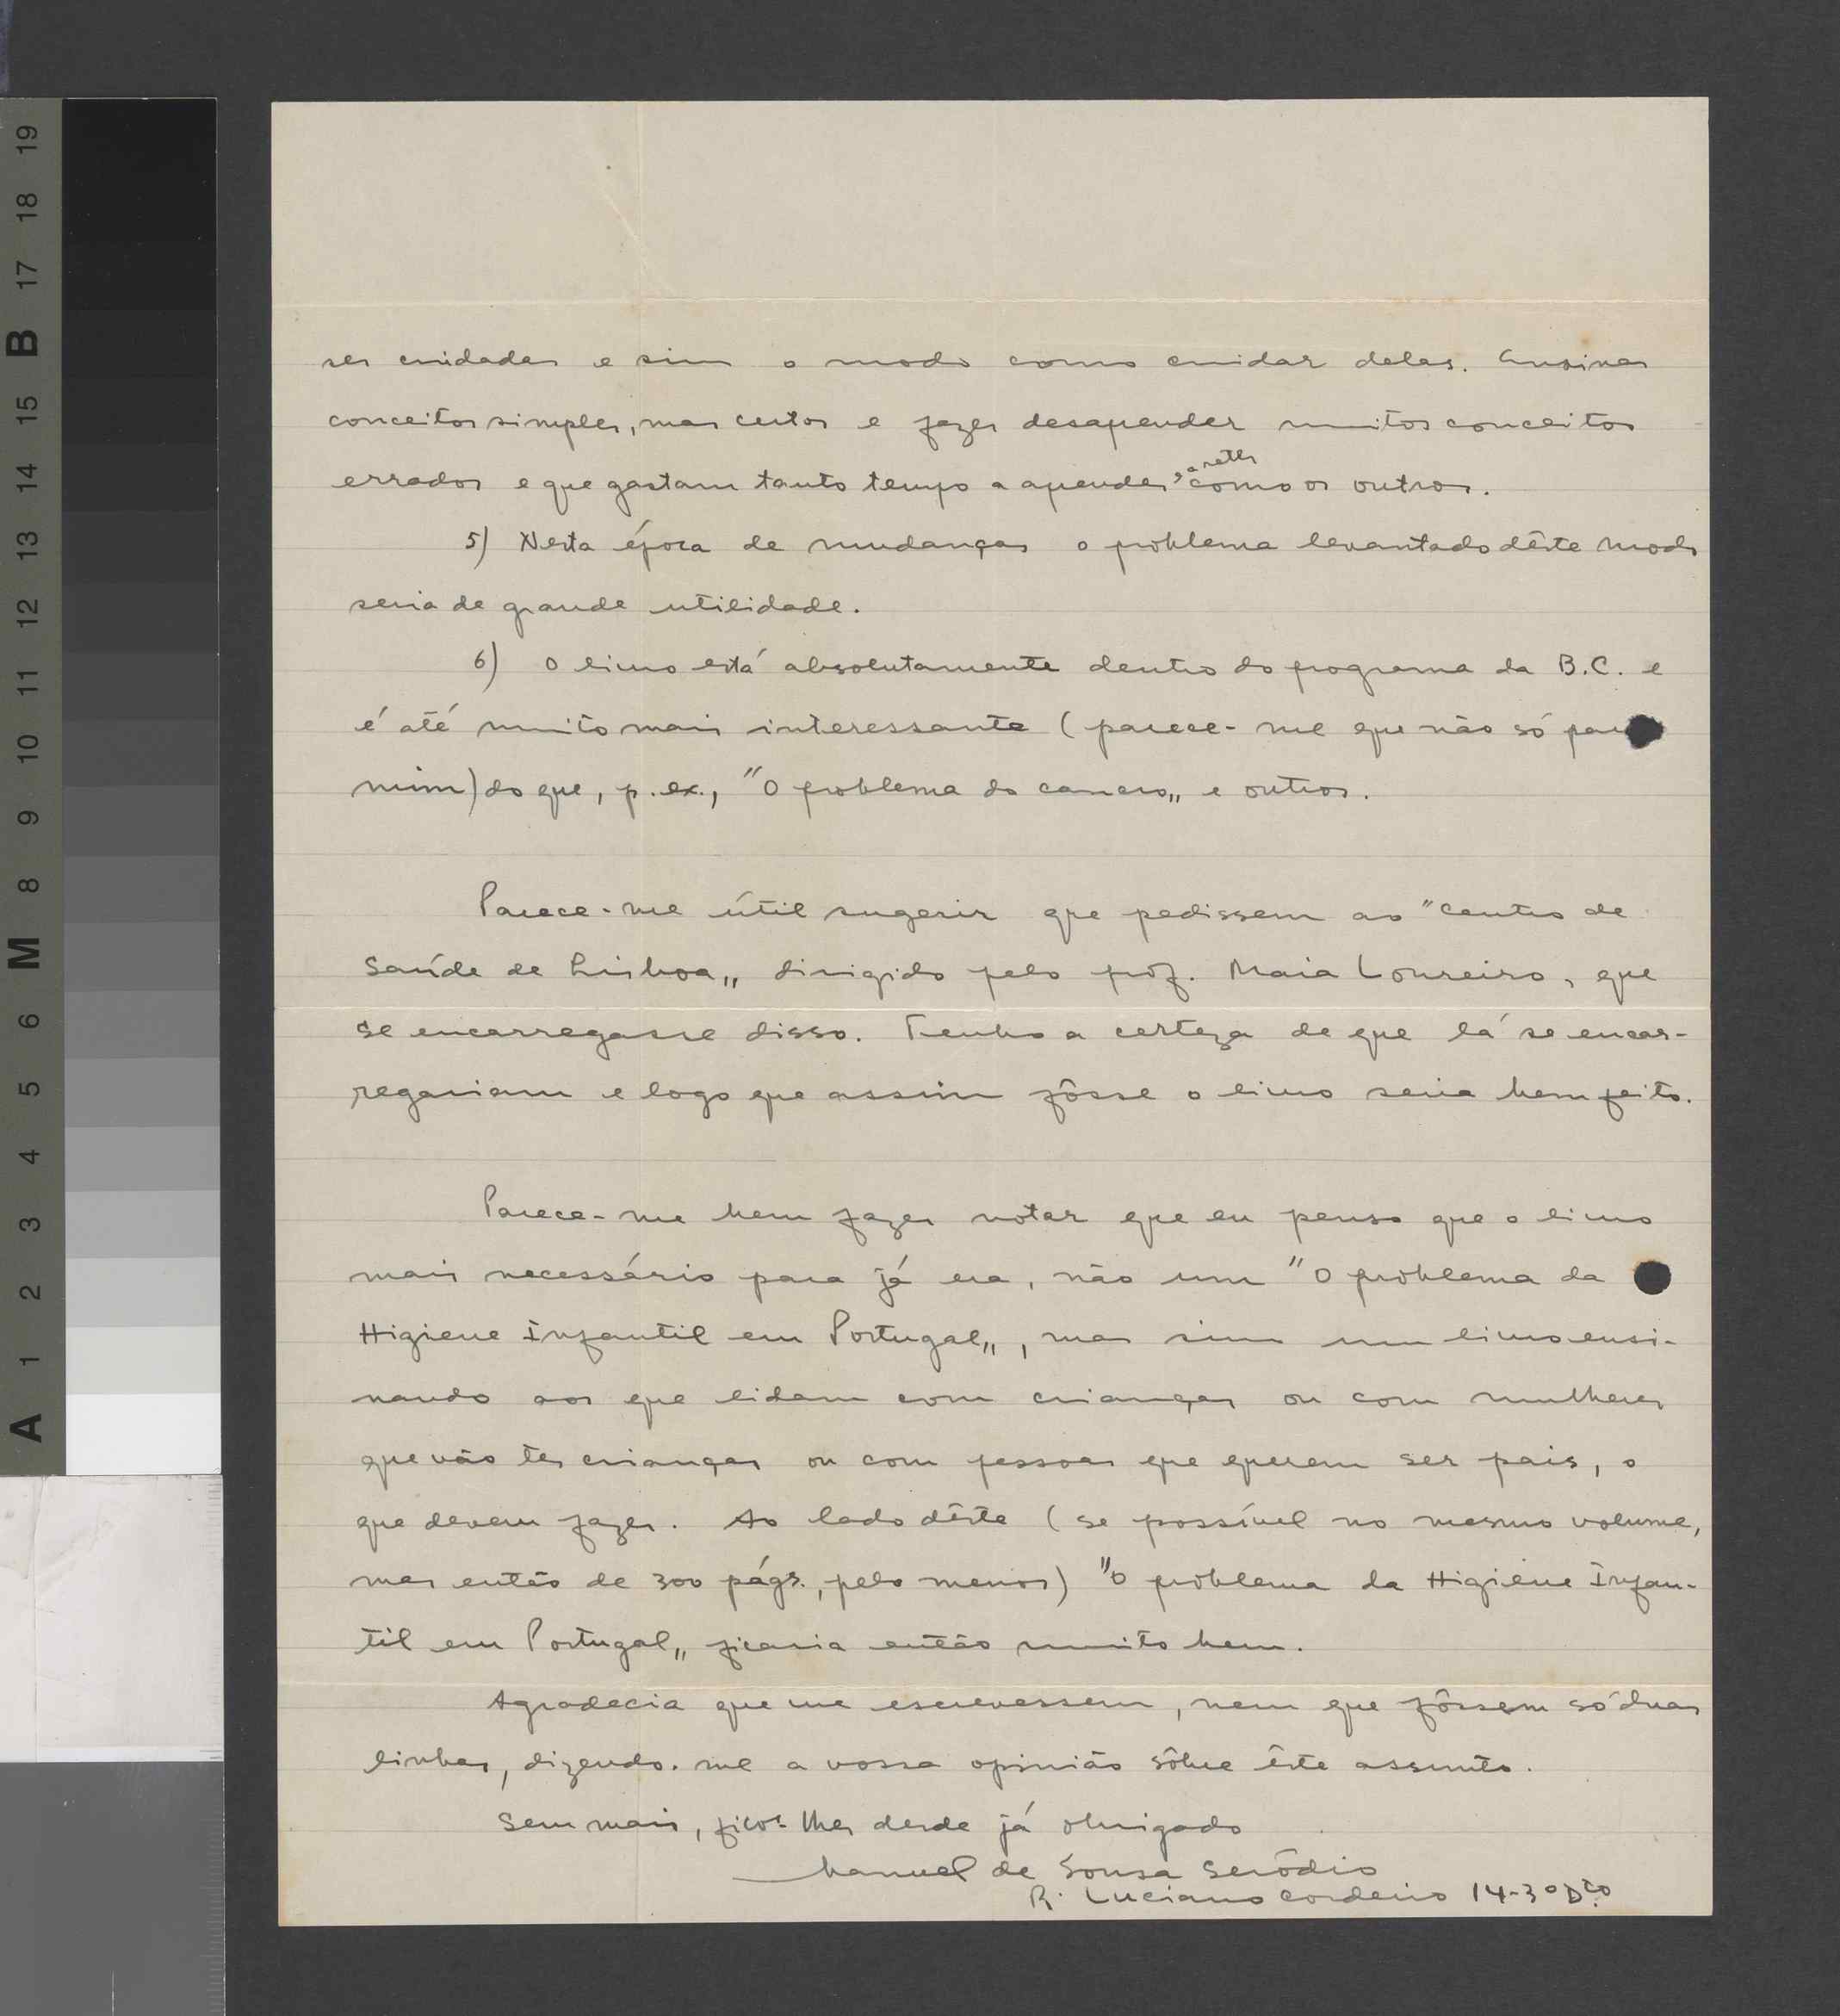 ser cuidadas e sim o modo como cuidar delas. Ensinar
conceitos simples, mas certos e fazer desaprender muitos conceitos
errados e que gastam tanto tempo a aprender, como os outros.
5) Nesta época de mudanças o problema levantado dêste modo
seria de grande utilidade.
6) O livro está absolutamente dentro do programa da B.C. e
é até muito mais interessante (parece-me que não só para
mim) do que, p. ex., "O problema do cancro„ e outros.
Parece-me útil sugerir que pedissem ao "Centro de
Saúde de Lisboa„ dirigido pelo prof. Maia Loureiro, que
se encarregasse disso. Tenho a certeza de que lá se encar-
regariam e logo que assim fôsse o livro seria bem feito.
Parece-me bem fazer notar que eu penso que o livro
mais necessário para já era, não um "O problema da
Higiene Infantil em Portugal„, mas sim um livro ensi-
nando aos que lidam com crianças ou com mulheres
que vão ter crianças ou com pessoas que querem ser pais, o
que devem fazer. Ao lado dêste (se possível no mesmo volume,
mas então de 300 págs., pelo menos) "O problema da Higiene Infan-
til em Portugal„ ficaria então muito bem.
Agradecia que me escrevessem, nem que fôssem só duas
linhas, dizendo-me a vossa opinião sôbre êste assunto.
Sem mais, fico-lhes desde já obrigado
Manuel de Sousa Seródio
R. Luciano Cordeiro 14-3º Dto
A 1 2 3 4 5 6 M 8 9 10 11 12 13 14 15 B 17 18 19